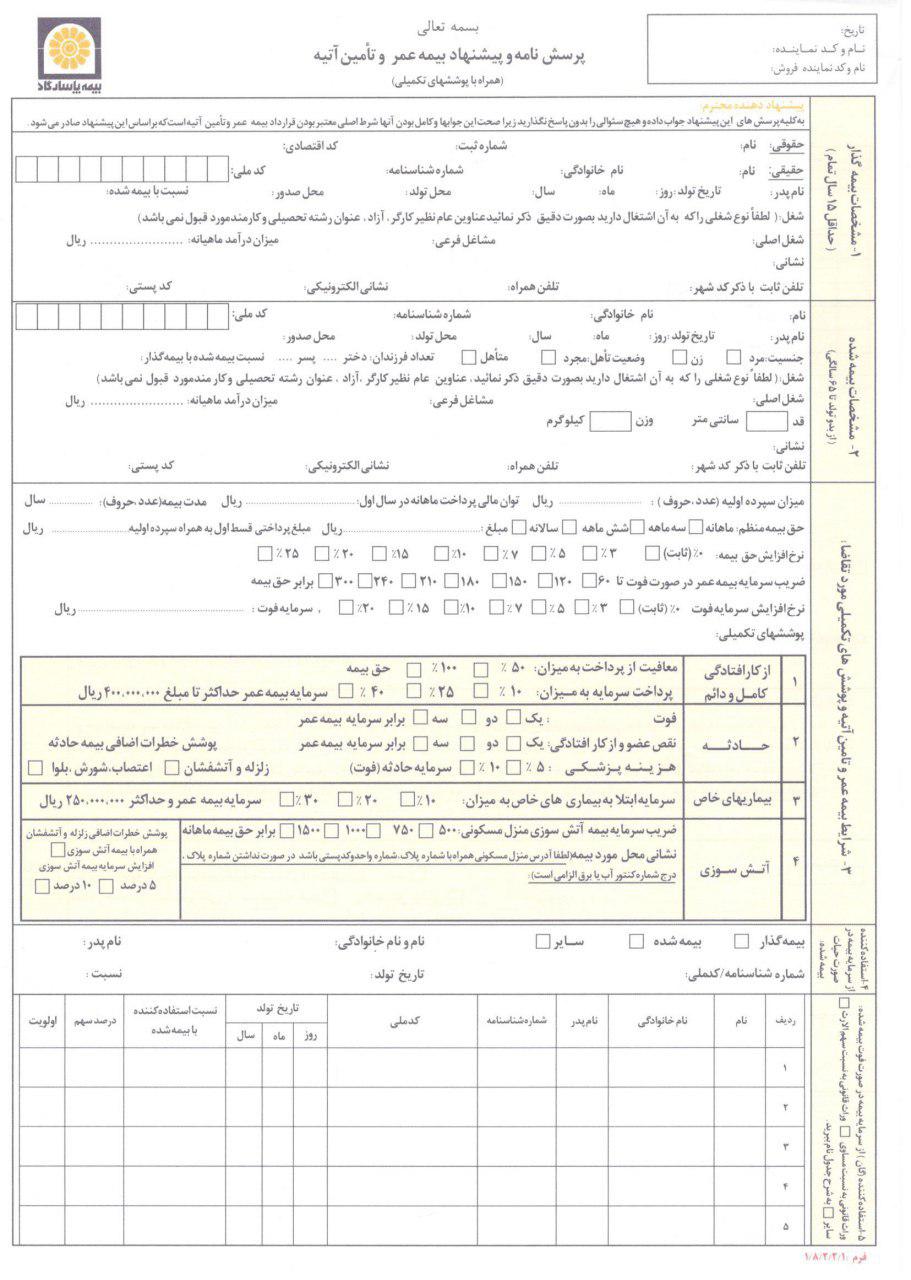 بسمه تعالی
پرسش نامه و پیشنهاد بیمه عمر و تأمین آتیه
(همراه با پوششهای تکمیلی)
تاریخ:
نام و کد نماینده:
نام و کد نماینده فروش:
بیمه پاسارگاد
پیشنهاد دهنده محترم:
به کلیه پرسش های این پیشنهاد جواب داده و هیچ سئوالی را بدون پاسخ نگذارید زیرا صحت این جوابها و کامل بودن آنها شرط اصلی معتبر بودن قرارداد بیمه عمر و تأمین آتیه است که بر اساس این پیشنهاد صادر می شود.
۱- مشخصات بیمه گذار
(حداقل ۱۵ سال تمام)
حقوقی: نام: شماره ثبت: کد اقتصادی:
حقیقی: نام: نام خانوادگی: شماره شناسنامه: کد ملی:
نام پدر: تاریخ تولد: روز: ماه: سال: محل تولد: محل صدور: نسبت با بیمه شده:
شغل: ( لطفاً نوع شغلی را که به آن اشتغال دارید بصورت دقیق ذکر نمائید عناوین عام نظیر کارگر، آزاد ، عنوان رشته تحصیلی و کارمند مورد قبول نمی باشد)
شغل اصلی: مشاغل فرعی: میزان درآمد ماهیانه: ........................ ریال
نشانی:
تلفن ثابت با ذکر کد شهر: تلفن همراه: نشانی الکترونیکی: کد پستی:
۲- مشخصات بیمه شده
(از بدو تولد تا ۶۵ سالگی)
نام: نام خانوادگی: شماره شناسنامه: کد ملی:
نام پدر: تاریخ تولد: روز: ماه: سال: محل تولد: محل صدور:
جنسیت: مرد □ زن □ وضعیت تأهل: مجرد □ متأهل □ تعداد فرزندان: دختر .... پسر .... نسبت بیمه شده با بیمه گذار:
شغل: ( لطفاً نوع شغلی را که به آن اشتغال دارید بصورت دقیق ذکر نمائید، عناوین عام نظیر کارگر ،آزاد ، عنوان رشته تحصیلی و کارمند مورد قبول نمی باشد)
شغل اصلی: مشاغل فرعی: میزان درآمد ماهیانه: ........................ ریال
قد □ سانتی متر وزن □ کیلوگرم
نشانی:
تلفن ثابت با ذکر کد شهر: تلفن همراه: نشانی الکترونیکی: کد پستی:
۳- شرایط بیمه عمر و تامین آتیه و پوشش های تکمیلی مورد تقاضا:
میزان سپرده اولیه (عدد،حروف) : ........................ ریال توان مالی پرداخت ماهانه در سال اول: ........................ ریال مدت بیمه(عدد، حروف): ................ سال
حق بیمه منظم: ماهانه □ سه ماهه □ شش ماهه □ سالانه □ مبلغ: ........................ ریال مبلغ پرداختی قسط اول به همراه سپرده اولیه ........................ ریال
نرخ افزایش حق بیمه: ۰٪ (ثابت) □ ۳٪ □ ۵٪ □ ۷٪ □ ۱۰٪ □ ۱۵٪ □ ۲۰٪ □ ۲۵٪ □
ضریب سرمایه بیمه عمر در صورت فوت تا ۶۰ □ ۱۲۰ □ ۱۵۰ □ ۱۸۰ □ ۲۱۰ □ ۲۴۰ □ ۳۰۰ □ برابر حق بیمه
نرخ افزایش سرمایه فوت ۰٪ (ثابت) □ ۳٪ □ ۵٪ □ ۷٪ □ ۱۰٪ □ ۱۵٪ □ ۲۰٪ □ , سرمایه فوت : ........................ ریال
پوششهای تکمیلی:
۱ از کار افتادگی کامل و دائم
معافیت از پرداخت به میزان: ۵۰٪ □ ۱۰۰٪ □ حق بیمه
پرداخت سرمایه به میزان: ۱۰٪ □ ۲۵٪ □ ۴۰٪ □ سرمایه بیمه عمر حداکثر تا مبلغ ۴۰۰،۰۰۰،۰۰۰ ریال
۲ حادثه
فوت : یک □ دو □ سه □ برابر سرمایه بیمه عمر
نقص عضو و از کار افتادگی: یک □ دو □ سه □ برابر سرمایه بیمه عمر
پوشش خطرات اضافی بیمه حادثه
هزینه پزشکی : ۵٪ □ ۱۰٪ □ سرمایه حادثه (فوت)
زلزله و آتشفشان □ اعتصاب، شورش، بلوا □
۳ بیماریهای خاص
سرمایه ابتلا به بیماری های خاص به میزان: ۱۰٪ □ ۲۰٪ □ ۳۰٪ □ سرمایه بیمه عمر و حداکثر ۲۵۰،۰۰۰،۰۰۰ ریال
۴ آتش سوزی
ضریب سرمایه بیمه آتش سوزی منزل مسکونی: ۵۰۰ □ ۷۵۰ □ ۱۰۰۰ □ ۱۵۰۰ □ برابر حق بیمه ماهانه
نشانی محل مورد بیمه (لطفا آدرس منزل مسکونی همراه با شماره پلاک، شماره واحد و کدپستی باشد در صورت نداشتن شماره پلاک ،
درج شماره کنتور آب یا برق الزامی است):
پوشش خطرات اضافی زلزله و آتشفشان
همراه با بیمه آتش سوزی □
افزایش سرمایه بیمه آتش سوزی
۵ درصد □ ۱۰ درصد □
۴-استفاده کننده
از سرمایه بیمه در
صورت حیات
بیمه شده:
بیمه گذار □ بیمه شده □ سایر □ نام و نام خانوادگی: نام پدر:
شماره شناسنامه/کدملی: تاریخ تولد: نسبت :
۵-استفاده کننده (گان ) از سرمایه بیمه در صورت فوت بیمه شده:
وراث قانونی به نسبت مساوی □ وراث قانونی به نسبت سهم الارث □
سایر □ به شرح جدول نام ببرید.
ردیف نام نام خانوادگی نام پدر شماره شناسنامه کدملی تاریخ تولد روز ماه سال نسبت استفاده کننده با بیمه شده درصد سهم اولویت
۱
۲
۳
۴
۵
فرم :۱/۸/۲/۲/۱